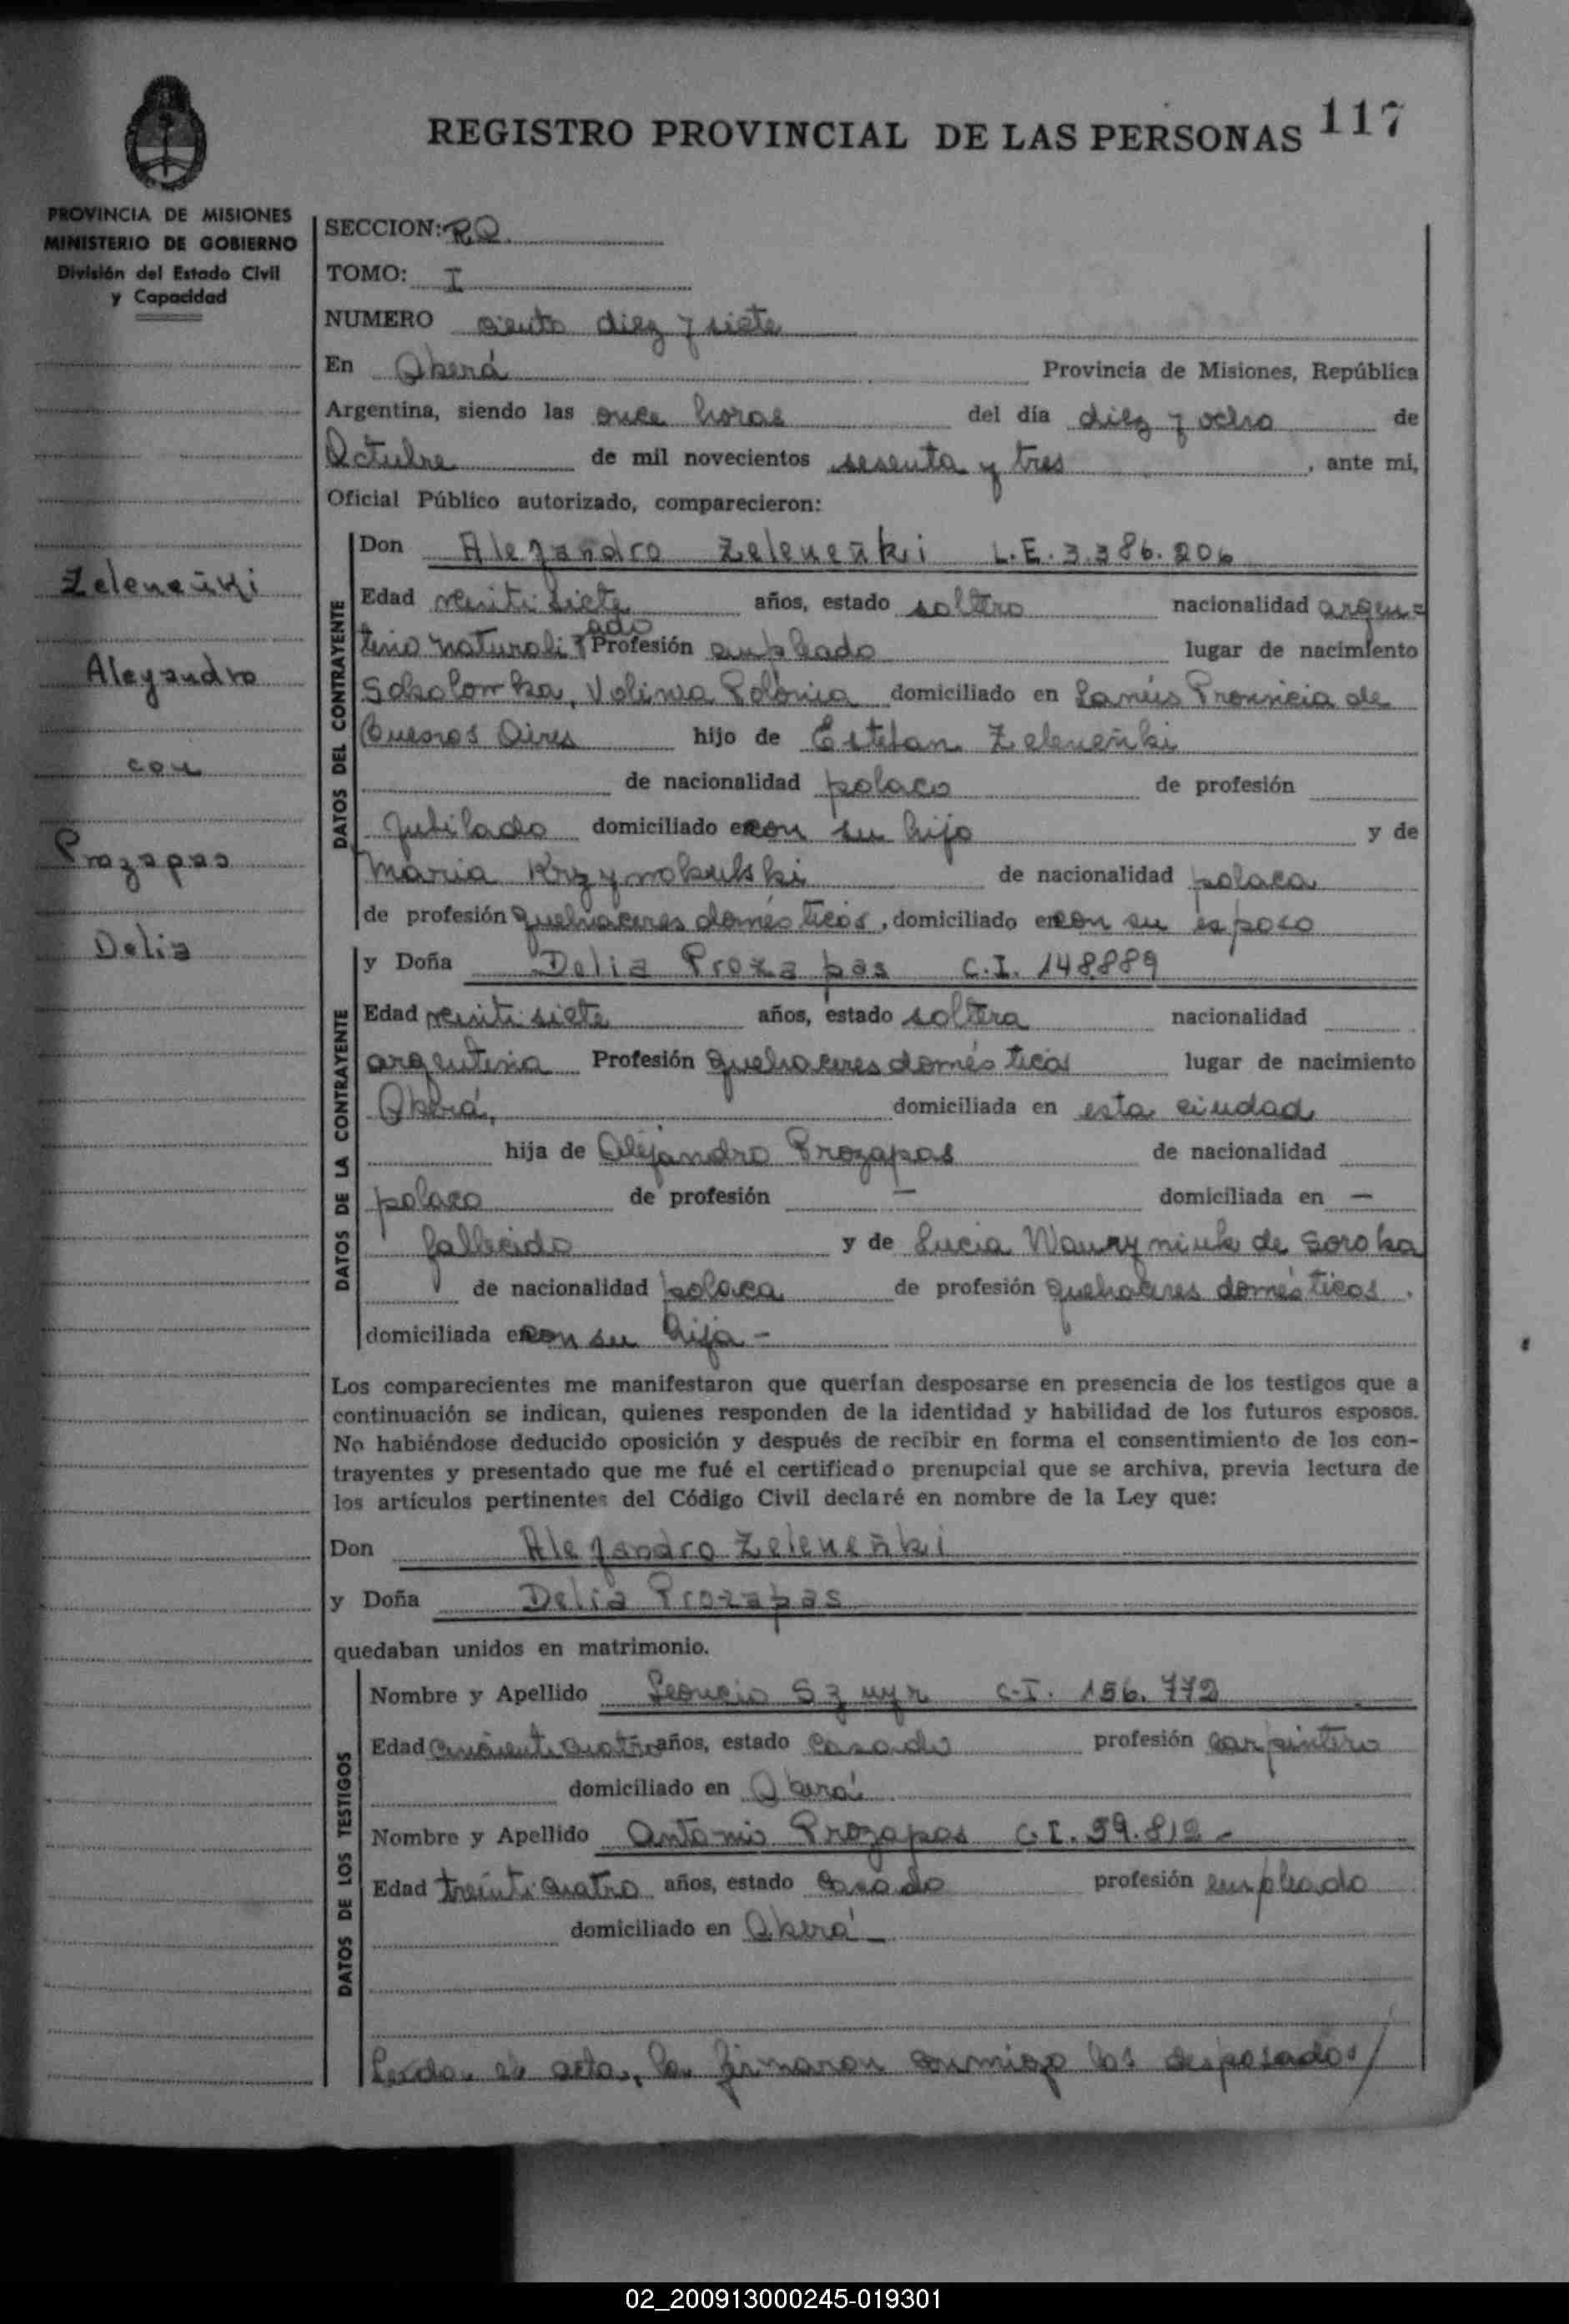 REGISTRO PROVINCIAL DE LAS PERSONAS 117
PROVINCIA DE MISIONES
MINISTERIO DE GOBIERNO
División del Estado Civil
y Capacidad
Zeleneñki
Alejandro
con
Prozapas
Delia
SECCION: R.Q.
TOMO: I
NUMERO ciento diez y siete
En Oberá Provincia de Misiones, República
Argentina, siendo las once horas del día diez y ocho de
Octubre de mil novecientos sesenta y tres, ante mi,
Oficial Público autorizado, comparecieron:
DATOS DEL CONTRAYENTE
Don Alejandro Zeleneñki L.E. 3.386.206
Edad veinti siete años, estado soltero nacionalidad argen=
tino naturalizado Profesión empleado lugar de nacimiento
Sokolowka, Volinia Polonia domiciliado en Lanús Provincia de
Buenos Aires hijo de Esteban Zeleneñki
de nacionalidad polaco de profesión
jubilado domiciliado en con su hijo y de
María Krzymokulski de nacionalidad polaca
de profesión quehaceres domésticos, domiciliado en con su esposo
DATOS DE LA CONTRAYENTE
y Doña Delia Prozapas C.I. 148.889
Edad veinti siete años, estado soltera nacionalidad
argentina Profesión quehaceres domésticos lugar de nacimiento
Oberá, domiciliada en esta ciudad
hija de Alejandro Prozapas de nacionalidad
polaco de profesión — domiciliada en —
fallecido y de Lucia Wawryniuk de Soroka
de nacionalidad polaca de profesión quehaceres domésticos.
domiciliada en con su hija -
Los comparecientes me manifestaron que querían desposarse en presencia de los testigos que a
continuación se indican, quienes responden de la identidad y habilidad de los futuros esposos.
No habiéndose deducido oposición y después de recibir en forma el consentimiento de los con-
trayentes y presentado que me fué el certificado prenupcial que se archiva, previa lectura de
los artículos pertinentes del Código Civil declaré en nombre de la Ley que:
Don Alejandro Zeleneñki
y Doña Delia Prozapas
quedaban unidos en matrimonio.
DATOS DE LOS TESTIGOS
Nombre y Apellido Leoncio Szuyr C.I. 156.772
Edad cincuenti cuatro años, estado casado profesión carpintero
domiciliado en Oberá
Nombre y Apellido Antonio Prozapas C.I. 59.812 -
Edad treinti cuatro años, estado casado profesión empleado
domiciliado en Oberá -
Leída el acta, la firmaron conmigo los desposados/
02_200913000245-019301